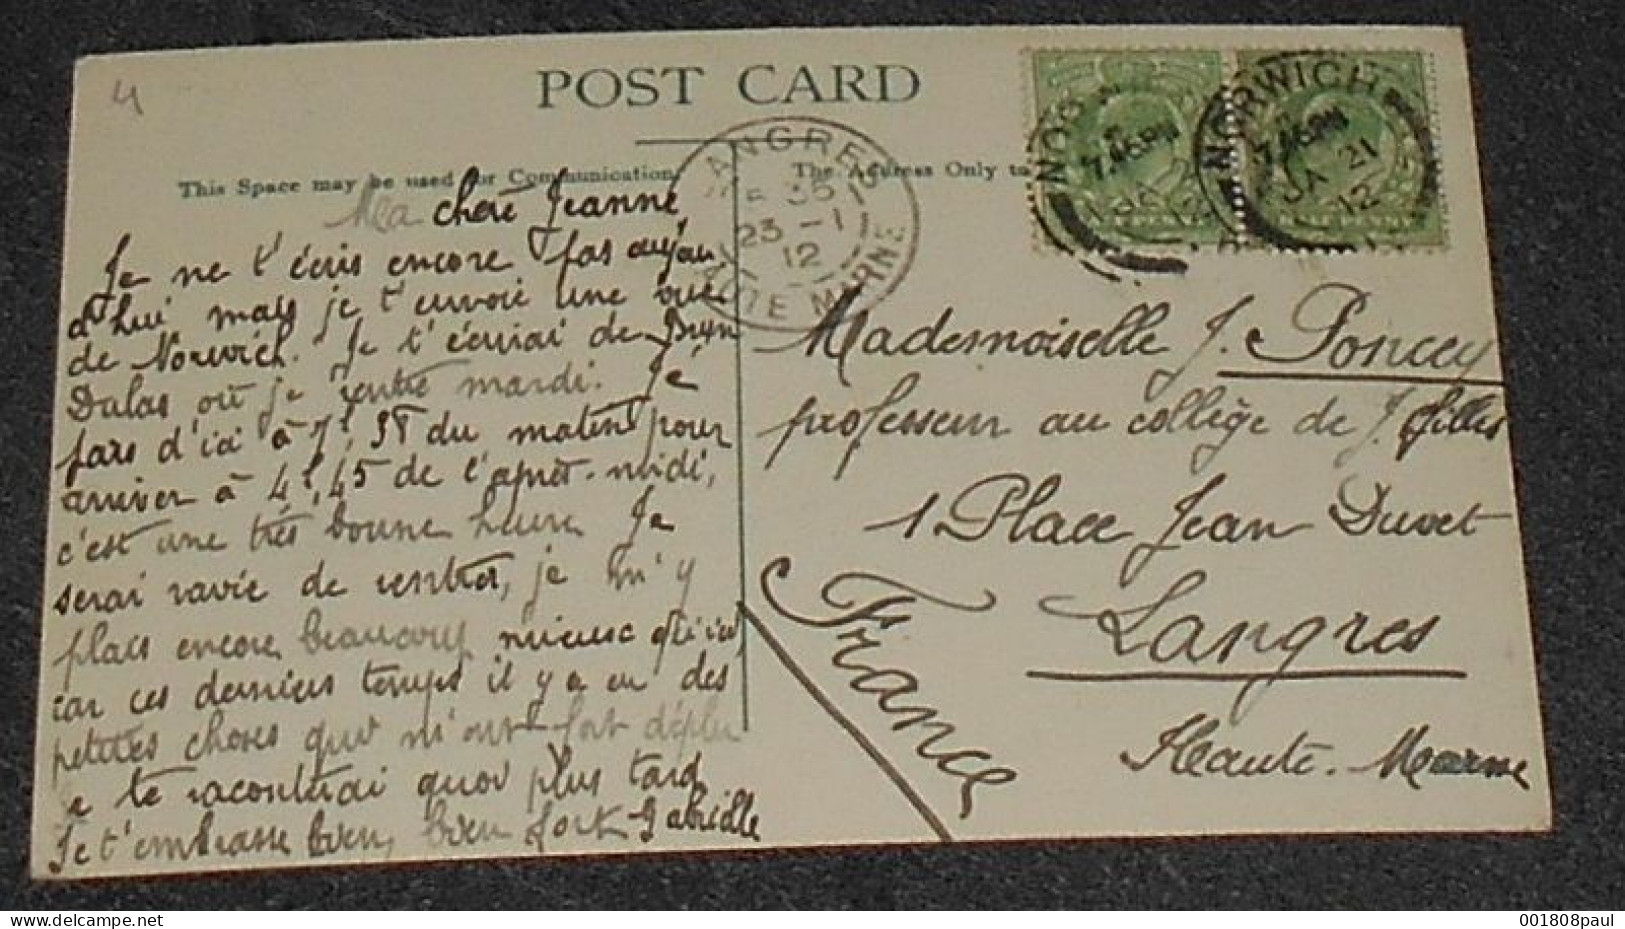 4
POST CARD
This Space may be used for Communication.
The Address Only to
ANGRES
23 - 1
12
HAUTE MARNE
NORWICH
7.45PM
JA 21
12
HALF PENNY
Ma chère Jeanne,
Je ne t'écris encore pas aujour
d'hui mais je t'envoie une vue
de Norwich. Je t'écrirai de Bryn
Dulas où je rentre mardi. Je
pars d'ici à 7h, du matin pour
arriver à 4h,45 de l'après-midi,
c'est une très bonne heure Je
serai ravie de rentrer, je m'y
plais encore beaucoup mieux qu'ici,
car ces derniers temps il y a eu des
petites choses qui m'ont fort déplu
Je te raconterai quoi plus tard
Je t'embrasse bien, bien fort Gabrielle
Mademoiselle J. Poncey
professeur au collège de J. filles
1 Place Jean Duvet
Langres
Haute-Marne
France
delcampe.net
001808paul